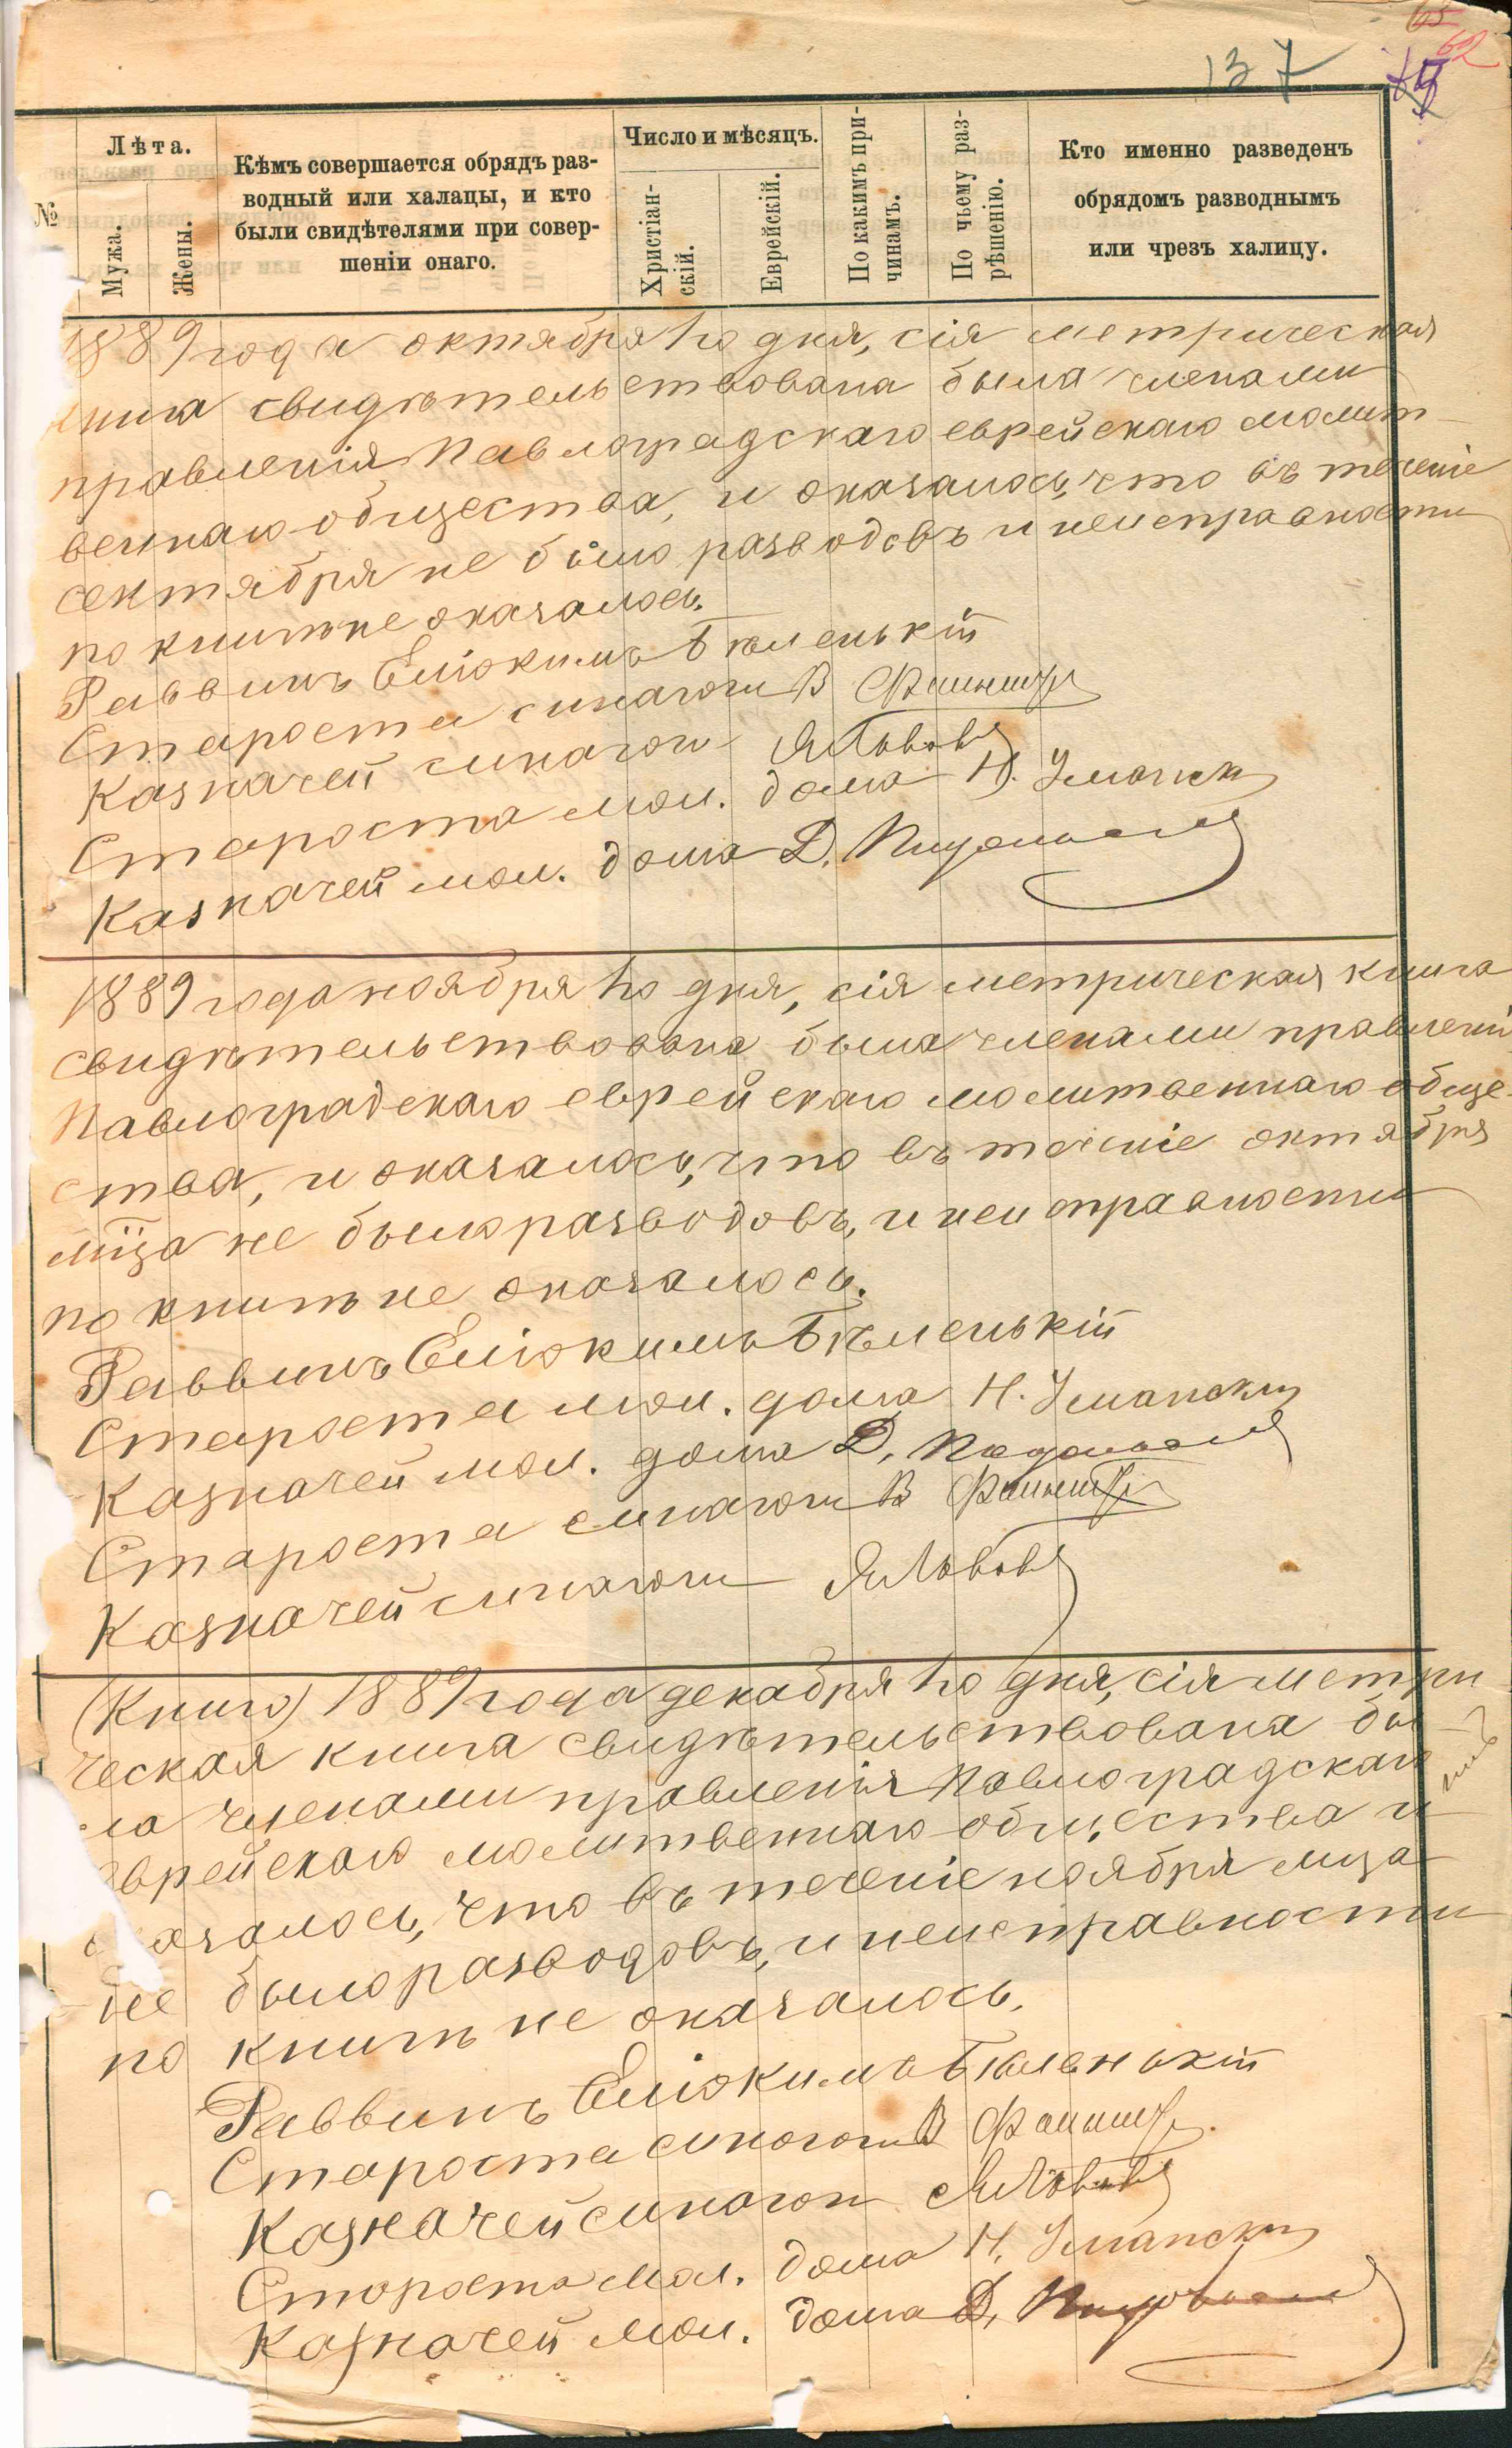 137
65
62
№
Лѣта.
Мужа.
Жены.
Кѣмъ совершается обрядъ раз-
водный или халацы, и кто
были свидѣтелями при совер-
шеніи онаго.
Число и мѣсяцъ.
Христіан-
скій.
Еврейскій.
По какимъ при-
чинамъ.
По чьему раз-
рѣшенію.
Кто именно разведенъ
обрядомъ разводнымъ
или чрезъ халицу.
1889 года октября 1го дня, сія метрическая
книга свидѣтельствована была членами
правленія Павлоградскаго еврейскаго молит-
веннаго общества, и оказалось, что въ теченіе
сентября не было разводовъ и неисправности
по книгѣ не оказалось.
Раввинъ Еліокимъ Бѣленькій
Староста синагоги В
Казначей синагоги Я Львовъ
Староста мол. дома Н. Уманск
Казначей мол. дома Д.
1889 года ноября 1го дня, сія метрическая книга
свидѣтельствована была членами правленія
Павлоградскаго еврейскаго молитвеннаго обще-
ства, и оказалось, что въ теченіе октября
мца не было разводовъ, и неисправности
по книгѣ не оказалось.
Раввинъ Еліокимъ Бѣленькій
Староста мол. дома Н. Уманскій
Казначей мол. дома Д.
Староста синагоги В
Казначей синагоги Я Львовъ
(Книга) 1889 года декабря 1го дня, сія метри
ческая книга свидѣтельствована бы
ла членами правленія Павлоградскаго
еврейскаго молитвеннаго общества и
оказалось, что въ теченіе ноября мца
не было разводовъ, и неисправности
по книгѣ не оказалось.
Раввинъ Еліокимъ Бѣленькій
Староста синагоги В
Казначей синагоги Я Львовъ
Староста мол. дома Н. Уманскій
Казначей мол. дома Д.